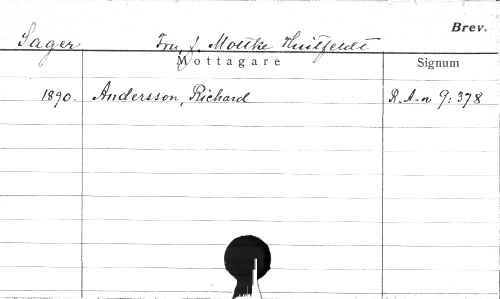 Brev.
Sager Fru, f. Moltke Huitfeldt
Mottagare Signum
1890. Andersson, Richard R. A-n 9: 378